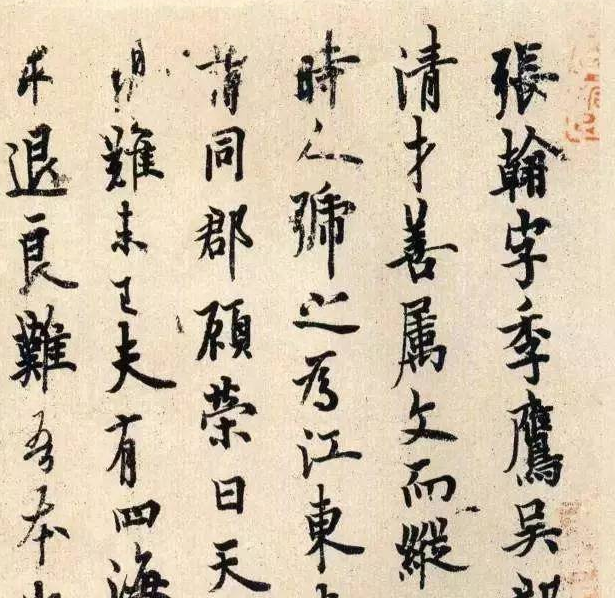 張翰字季鷹吳
清才善属文而縱
時人號之為江東
同郡顧榮曰天
難未已夫有四海
求退良難吾本